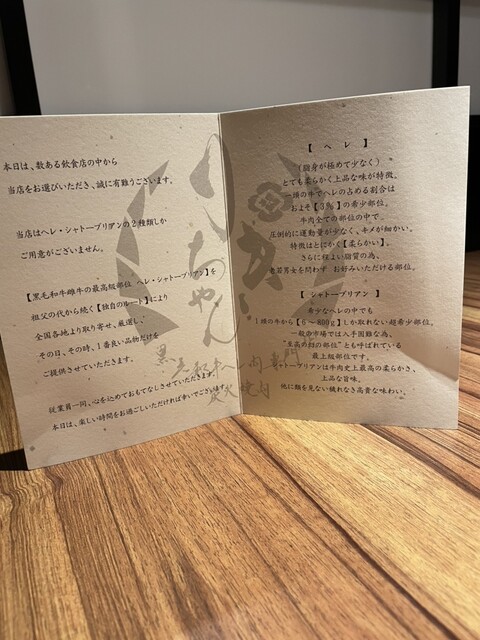 本日は、数ある飲食店の中から
当店をお選びいただき、誠に有難うございます。
当店はヘレ・シャトーブリアンの2種類しか
ご用意がございません。
【黒毛和牛雌牛の最高級部位 ヘレ・シャトーブリアン】を
祖父の代から続く【独自のルート】により
全国各地より取り寄せ、厳選し、
その日、その時、1番良い品物だけを
ご提供させていただきます。
従業員一同、心を込めておもてなしさせていただきます。
本日は、楽しい時間をお過ごしいただければ幸いでございます。
【 ヘレ 】
(脂身が極めて少なく)
とても柔らかく上品な味が特徴。
一頭の牛でヘレの占める割合は
およそ【3%】の希少部位。
牛肉全ての部位の中で
圧倒的に運動量が少なく、キメが細かい。
特徴はとにかく【柔らかい】。
さらに程よい脂質の為、
老若男女を問わず お好みいただける部位。
【 シャトーブリアン 】
希少なヘレの中でも
1頭の牛から【6~800g】しか取れない超希少部位。
一般の市場では入手困難な為、
"生高の幻の部位"とも呼ばれている
最上級部位です。
シャトーブリアンは牛肉史上最高の柔らかさ、
上品な旨味。
他に類を見ない穢れなき高貴な味わい。
黒毛和牛ヘレ肉専門
炭火焼肉